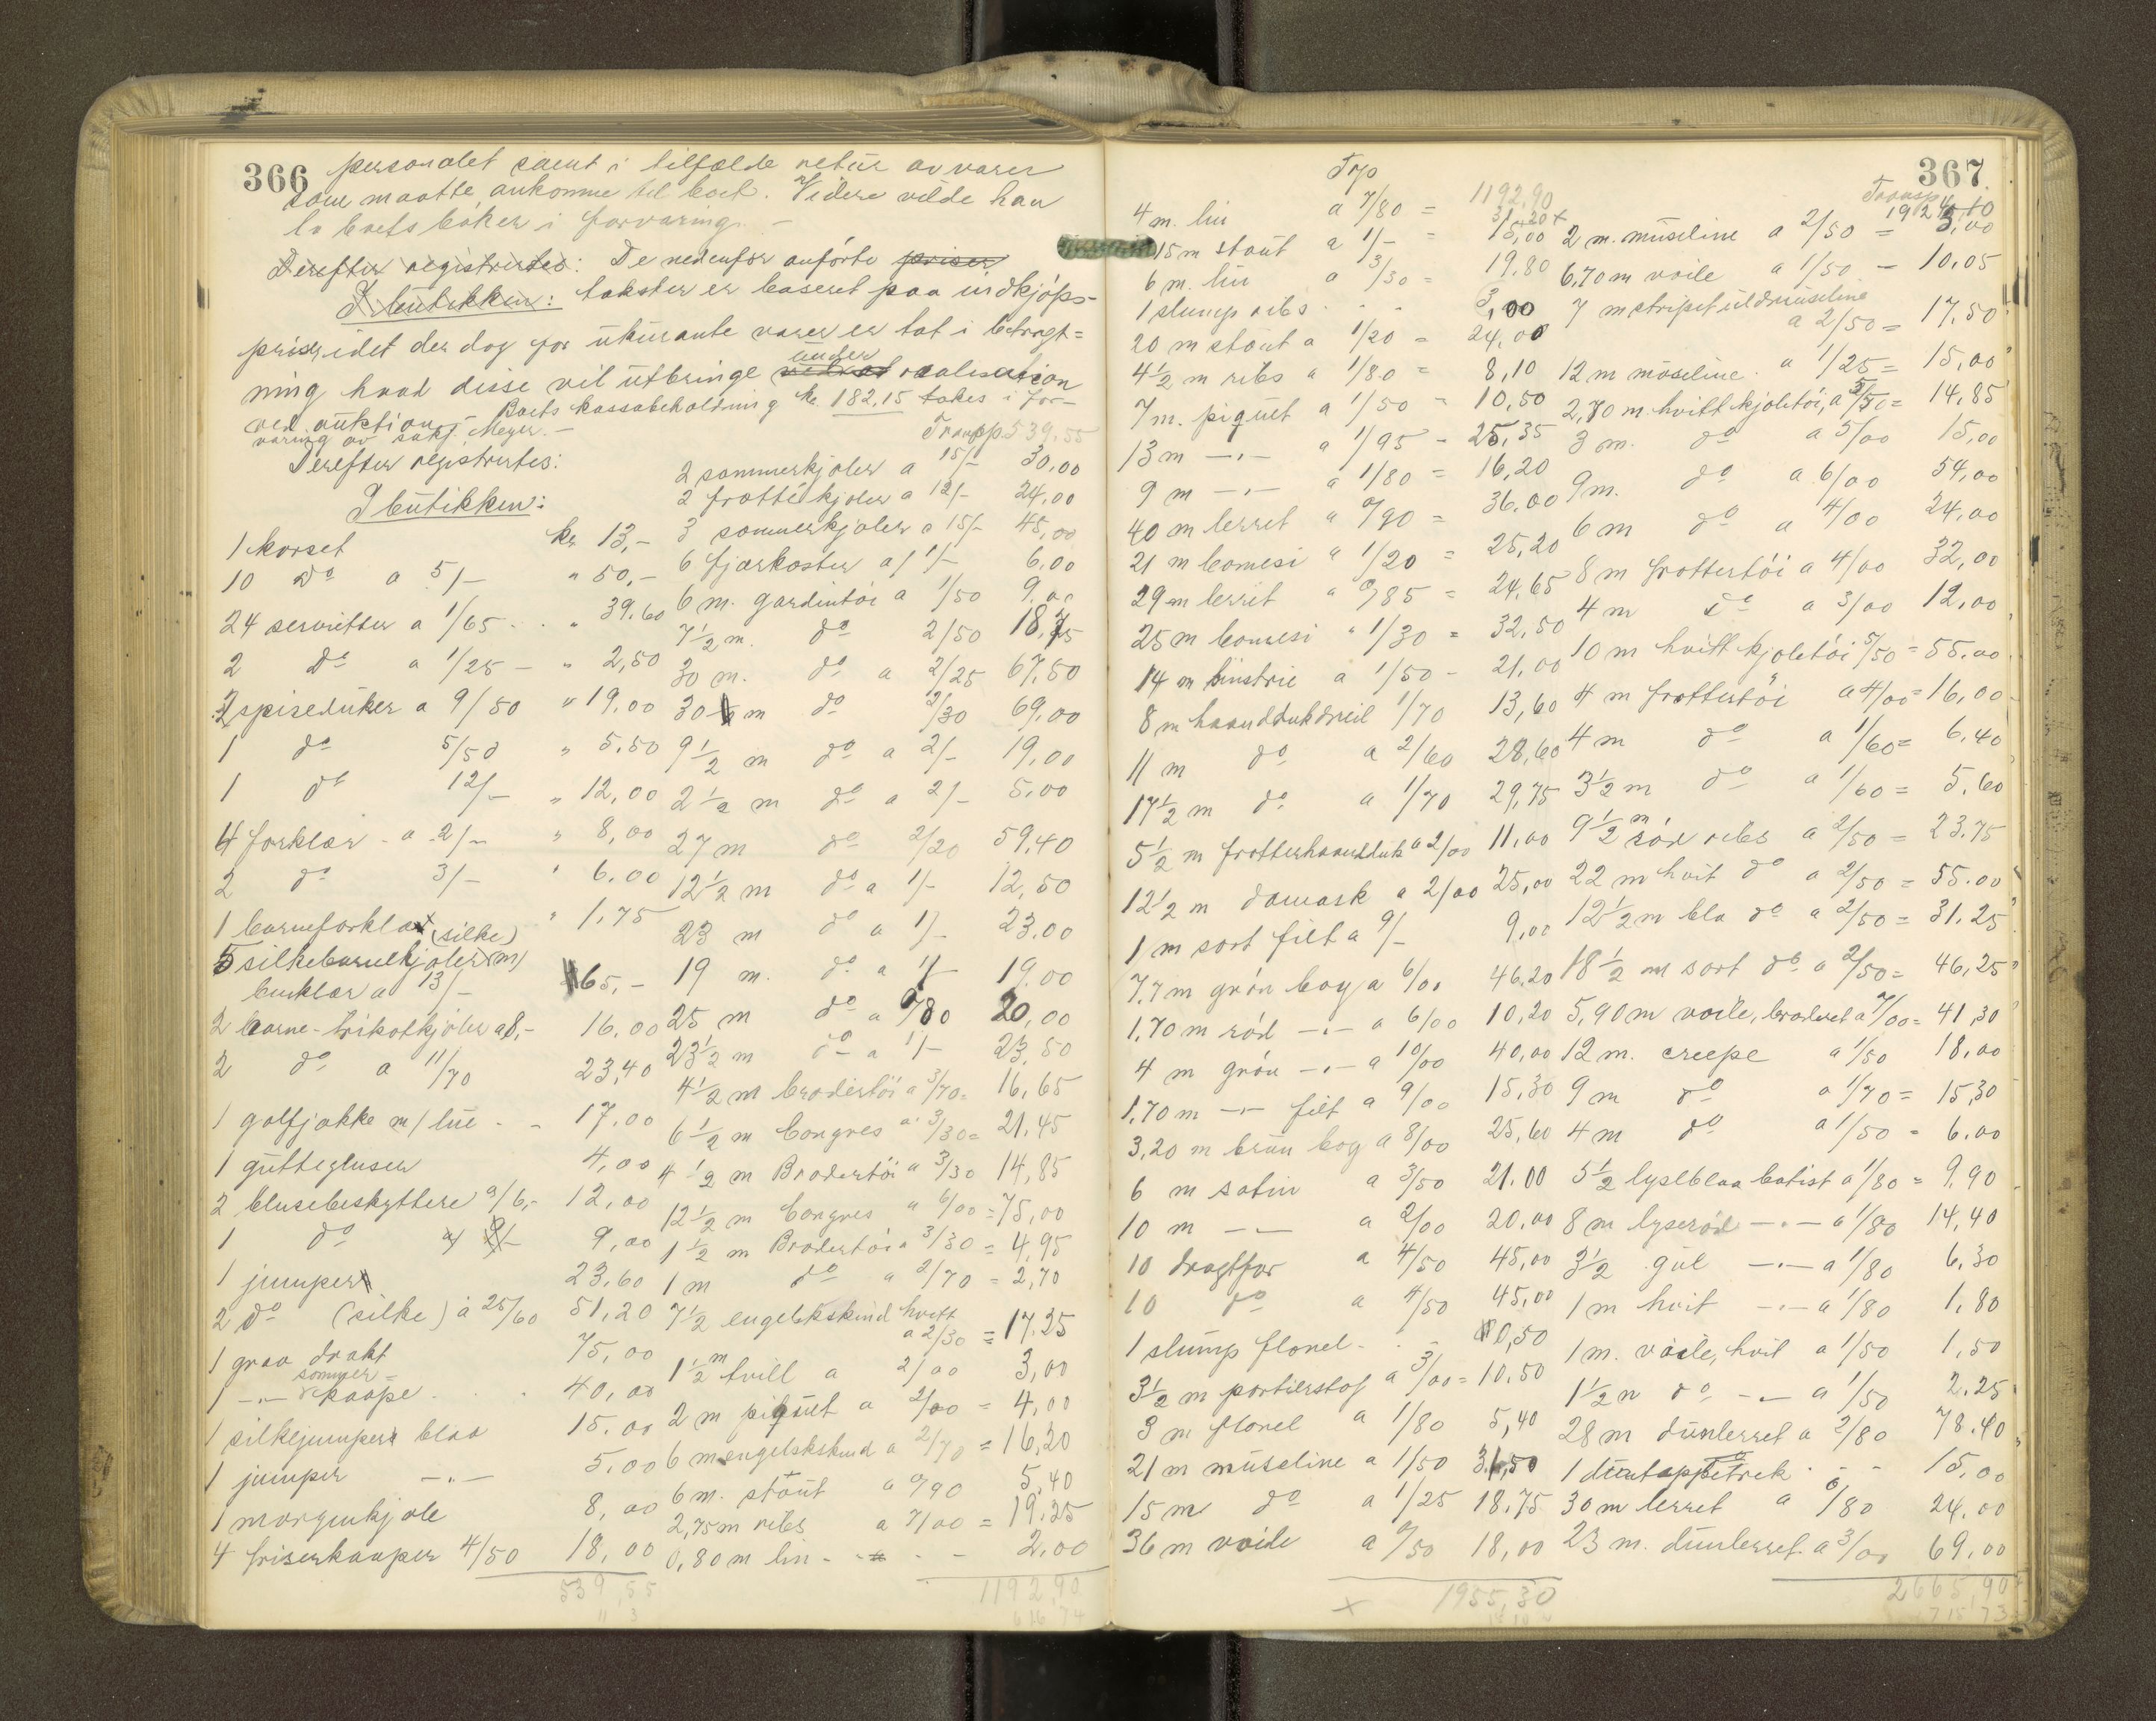 366
personalet samt i tilfælde retur av varer
som maatte ankomme til boet. Videre vilde han
ta boets bøker i forvaring. –
Derefter registrertes: De nedenfor anførte priser
I butikken: takster er baseret paa indkjøps-
priser idet der dog for ukurante varer er tat i betragt=
ning hvad disse vil utbringe ved at under realisation
ved auktion. – Boets kassabeholdning kr. 182.15 takes i for-
varing av sakf. Meyer. –
Derefter registrertes:
I butikken:
1 korset kr 13,–
10 do a 5/– " 50,–
24 servietter a 1/65 . . " 39.60
2 do a 1/25 – " 2,50
2 spiseduker a 9/50 " 19.00
1 do 5/50 " 5.50
1 do 12/– " 12,00
4 forklær - a 2/– " 8,00
2 do 3/– " 6.00
1 barneforklæ (silke) " 1,75
5 silkebarnekjoler (m)
benklær a 13/– 65,–
2 barne-trikotkjoler a 8,– 16.00
2 do a 11/70 23,40
1 golfjakke m/ lue - - 17.00
1 guttegluser 4,00
2 blusebeskyttere a/6,- 12,00
1 do a/ 9/– 9,00
1 jumper 23.60
2 do (silke) à 25/60 51,20
1 graa drakt 75,00
1 –"– sommer=kaape . . 40,00
1 silkejumper blaa 15.00
1 jumper –"– 5.00
1 morgenkjole 8,00
4 friserkaaper 4/50 18,00
539,55
Transp. 539.55
2 sommerkjoler a 15/– 30,00
2 frottékjoler a 12/– 24,00
3 sommerkjoler a 15/– 45,00
6 fjærkoster a/ 1/– 6,00
6 m. gardintöi a 1/50 9.00
7½ m. do 2/50 18,75
30 m. do a 2/25 67,50
30 m do 2/30 69,00
9½ m do a 2/– 19,00
2½ m do a 2/– 5.00
27 m do 2/20 59,40
12½ m do a 1/– 12,50
23 m do a 1/– 23.00
19 m. do a 1/– 19.00
25 m do a 0/80 20,00
23½ m do a 1/– 23.50
4½ m brodertöi a 3/70= 16,65
6½ m Congres a 3/30= 21.45
4½ m Brodertöi a 3/30 14,85
12½ m Congres a 6/00 =75,00
1½ m Brodertöi a 3/30 = 4,95
1 m do a 2/70 = 2,70
7½ engelskskind hvitt
a 2/30 = 17.25
1½ m tvill a 2/00 3,00
2 m piquet a 2/00 = 4,00
6 m engelskskind a 2/70 = 16,20
6 m. stout a 0/90 5,40
2,75 m ribs a 7/00 = 19.25
0,80 m lin - - - - 2,00
1192,90
367
Trp 1192,90
4 m. lin a 7/80 = 31,20
15 m stout a 1/– = 15,00
6 m. lin a 3/30 = 19.80
1 slump ribs . - - 3,00
20 m stout a 1/20 = 24,00
4½ m ribs a 1/80 = 8,10
7 m. piquet a 1/50 - 10,50
13 m –"– a 1/95 - 25,35
9 m –"– a 1/80 = 16,20
40 m lerret a 0/90 = 36,00
21 m bomesi a 1/20 = 25,20
29 m lerret a 0/85 = 24,65
25 m bomesi a 1/30 = 32,50
14 m a 1/50 - 21,00
8 m haanddukdreil 1/70 13,60
11 m do a 2/60 28,60
17½ m do a 1/70 29,75
5½ m frotterhaandduk a 2/00 11,00
12½ m damask a 2/00 25,00
1 m sort filt a 9/– 9,00
7,7 m grön boy a 6/00 46,20
1,70 m röd –"– a 6/00 10,20
4 m grön –"– a 10/00 40,00
1,70 m –"– filt a 9/00 15,30
3,20 m brun boy a 8/00 25,60
6 m satin a 3/50 21.00
10 m –"– a 2/00 20,00
10 dragtfor a 4/50 45,00
10 do a 4/50 45,00
1 slump flonel - . - 0,50
3½ m portierstof a 3/00= 10,50
3 m flonel a 1/80 5,40
21 m museline a 1/50 31,50
15 m do a 1/25 18,75
36 m voile a 0/50 18,00
1955,30
Transp.
2 m. museline a 2/50 = 5,00
6,70 m voile a 1/50 – 10,05
7 m stripet uldmuseline
a 2/50 = 17,50
12 m museline . a 1/25= 15,00
2,70 m hvitt kjoletöi, a 5/50= 14,85
3 m. do a 5/00 15,00
9 m. do a 6/00 54,00
6 m do a 4/00 24,00
8 m frottertöi a 4/00 32,00
4 m do a 3/00 12,00
10 m hvitt kjoletöi 5/50 = 55.00
4 m frottertöi a 4/00 = 16,00
4 m do a 1/60= 6,40
3½ m do a 1/60 = 5,60
9½ m röd ribs a 2/50 = 23.75
22 m hvit do a 2/50 = 55.00
12½ m bla do a 2/50= 31.25
18½ m sort do a 2/50= 46,25
5,90 m voile, broderet a 7/00= 41,30
12 m. creepe a 1/50 18,00
9 m do a 1/70= 15,30
4 m do a 1/50 = 6.00
5½ lyseblaa batist a 1/80 = 9,90
8 m lyseröd –"– a 1/80 14,40
3½ gul –"– a 1/80 6,30
1 m hvit –"– a 1/80 1,80
1 m. voile, hvit a 1/50 1,50
1½ m do –"– a 1/50 2,25
28 m dunlerret a 2/80 78,40
1 duntæppetrek . - - 15,00
30 m lerret a 0/80 24,00
23 m. dunlerret a 3/00 69,00
2665,90